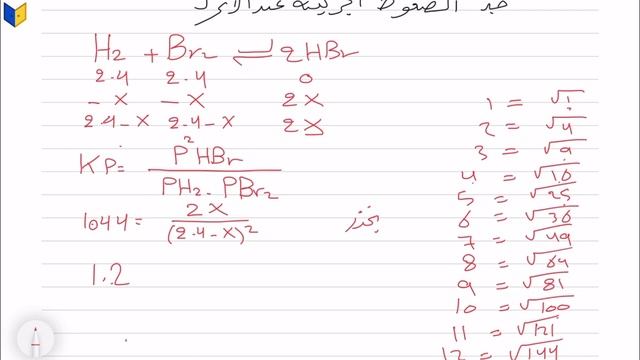 جد الضغوط الجزيئية عند الاتزان
H₂ + Br₂ ⇌ 2HBr
2.4 2.4 0
-x -x 2x
2.4-x 2.4-x 2x
KP = P²HBr / PH₂ . PBr₂
1044 = 2x / (2.4-x)² بجذر
1.2
1 = √1
2 = √4
3 = √9
4 = √16
5 = √25
6 = √36
7 = √49
8 = √64
9 = √81
10 = √100
11 = √121
12 = √144